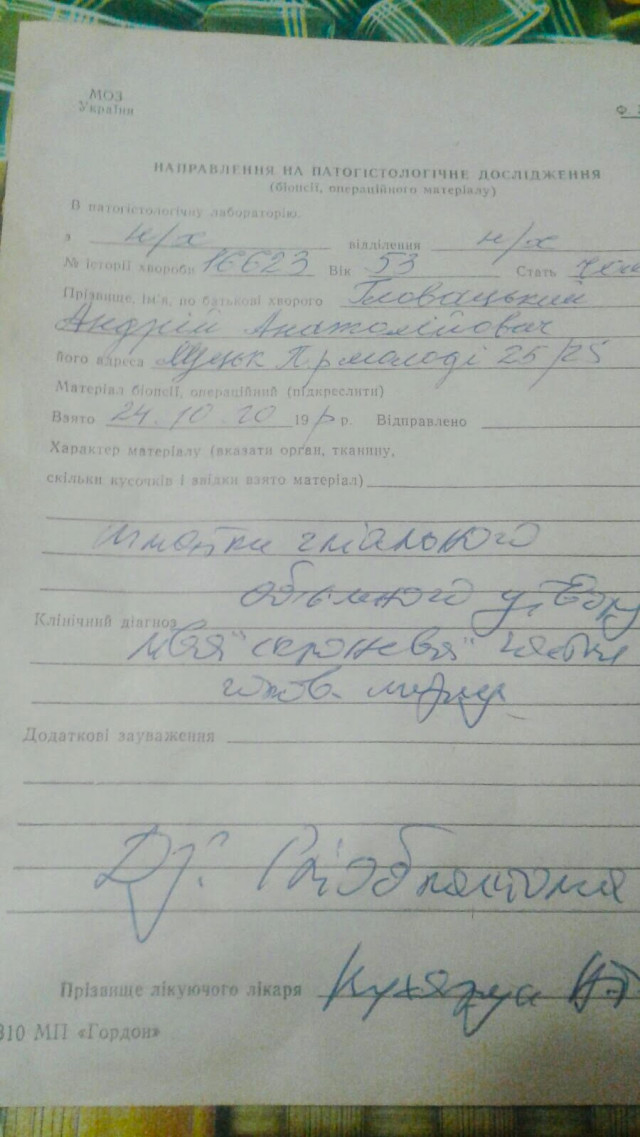 МОЗ
України
Ф
НАПРАВЛЕННЯ НА ПАТОГІСТОЛОГІЧНЕ ДОСЛІДЖЕННЯ
(біопсії, операційного матеріалу)
В патогістологічну лабораторію.
з н/х відділення н/х
№ історії хвороби 16623 Вік 53 Стать чол
Прізвище, ім'я, по батькові хворого Гловацький
Андрій Анатолійович
його адреса Луцьк Пр молоді 25/25
Матеріал біопсії, операційний (підкреслити)
Взято 24.10.20 19 р. Відправлено
Характер матеріалу (вказати орган, тканину,
скільки кусочків і звідки взято матеріал)
шматки гліального
обємного утвору
Клінічний діагноз ліва скронева частка
голов. мозку
Додаткові зауваження
Ds: Гліобластома
Прізвище лікуючого лікаря
310 МП «Гордон»